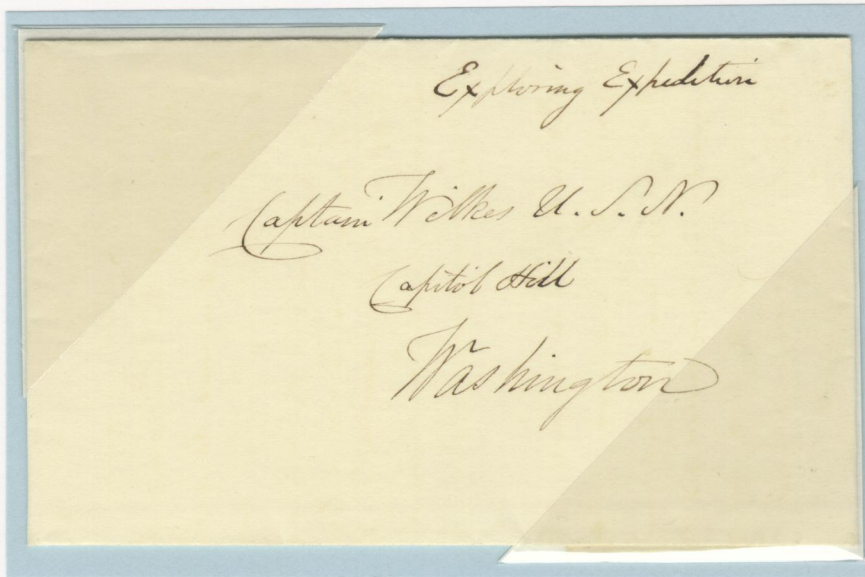 Exploring Expedition
Captain Wilkes U. S. N.
Capitol Hill
Washington